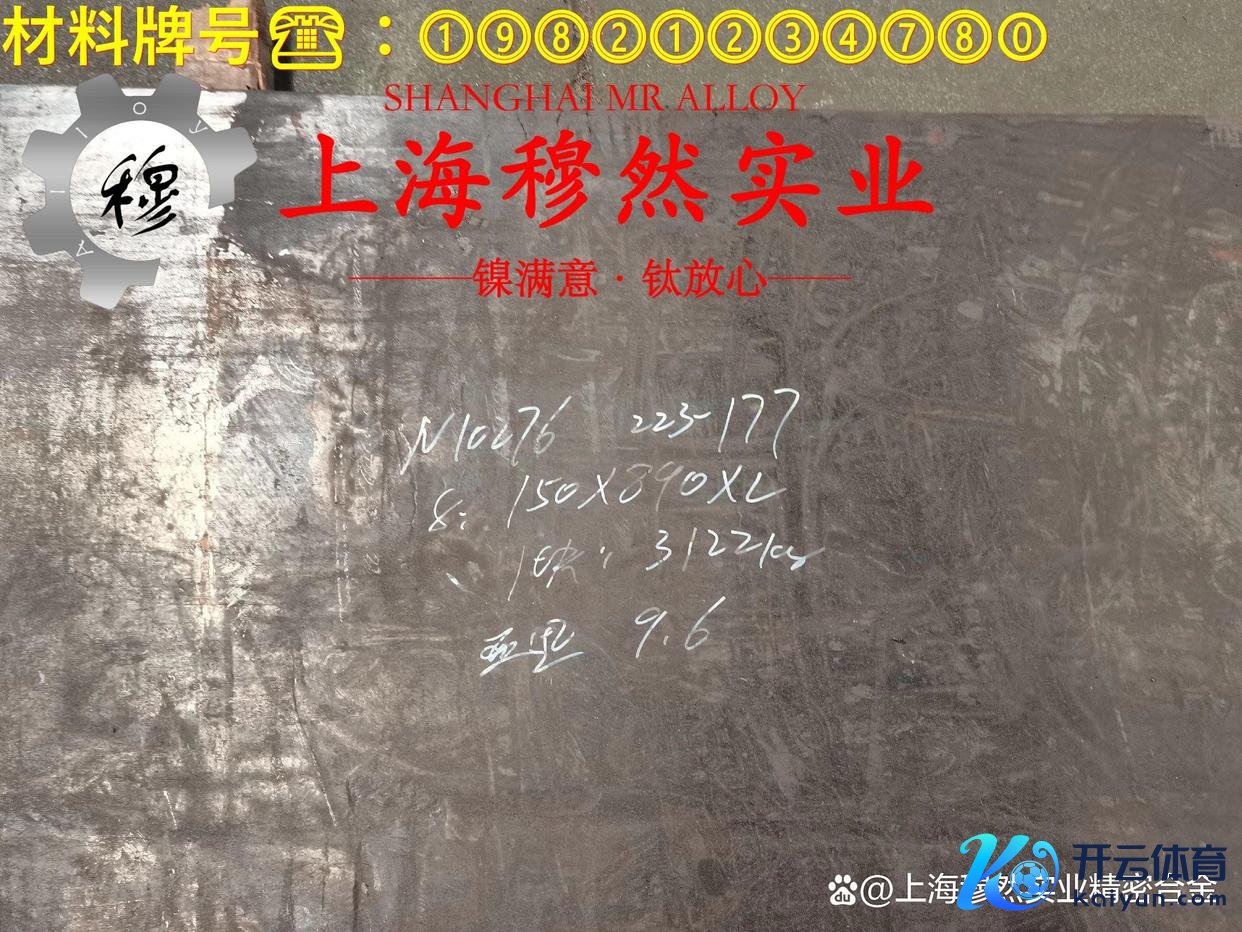 材料牌号☎：①⑨⑧②①②③④⑦⑧⓪
SHANGHAI MR ALLOY
上海穆然实业
镍满意·钛放心
穆
ALLOY
N10276 223-177
8: 150X890XL
1块: 3122kg
9.6
@上海穆然实业精密合金
开云体育
kaiyun.com